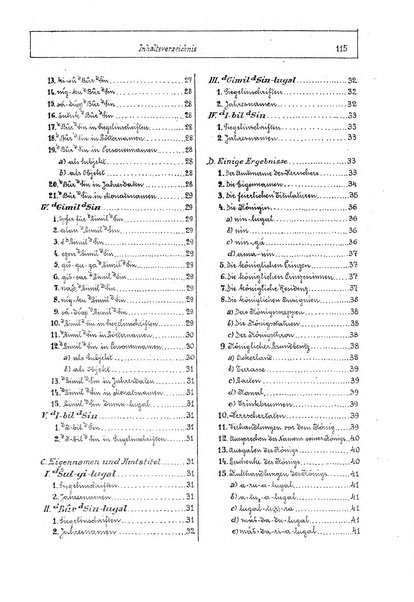 Inhaltsverzeichnis 115
13. ki-sù ᵈBûr ᵈSin 27
14. níg-ku ᵈBûr ᵈSin 28
15. sá-dúg ᵈBûr ᵈSin 28
16. ᵈBûr ᵈSin 28
17. ᵈBûr ᵈSin in Siegelinschriften 28
18. ᵈBûr ᵈSin in Götternamen 28
19. ᵈBûr ᵈSin in Personennamen 28
a) als Subjekt 28
b) als Objekt 28
20. ᵈBûr ᵈSin in Jahresdaten 28
21. ᵈBûr ᵈSin in Monatsnamen 29
IV. ᵈGimil ᵈSin 29
1. Opfer für ᵈGimil ᵈSin 29
2. alam ᵈGimil ᵈSin 29
3. é ᵈGimil ᵈSin 29
4. egen ᵈGimil ᵈSin 29
5. giš-gu-za ᵈGimil ᵈSin 29
6. giš-sar ᵈGimil ᵈSin 29
7. ᵈGimil ᵈSin 29
8. níg-ku ᵈGimil ᵈSin 29
9. sá-dúg ᵈGimil ᵈSin 29
10. ᵈGimil ᵈSin in Siegelinschriften 29
11. ᵈGimil ᵈSin in Götternamen 30
12. ᵈGimil ᵈSin in Personennamen 30
a) als Subjekt 30
b) als Objekt 30
13. ᵈGimil ᵈSin in Jahresdaten 31
14. ᵈGimil ᵈSin in Monatsnamen 31
15. ᵈGimil ᵈSin lugal 31
V. ᵈI-bil ᵈSin 31
1. ᵈI-bil ᵈSin 31
2. ᵈI-bil ᵈSin in Siegelinschriften 31
C. Eigennamen und Amtstitel 31
I. ᵈSul-gi-lugal 31
1. Siegelinschriften 31
2. Jahresnamen 31
II. ᵈBûr ᵈSin-lugal 31
1. Siegelinschriften 31
2. Jahresnamen 32
III. ᵈGimil ᵈSin-lugal 32
1. Siegelinschriften 32
2. Jahresnamen 32
IV. ᵈI-bil ᵈSin 33
1. Siegelinschriften 33
2. Jahresnamen 33
D. Einige Ergebnisse 33
1. Der Amtsname des Herrschers 33
2. Die Eigennamen 34
3. Die feierlichen Titulaturen 36
4. Die Königin 36
a) nin-lugal 36
b) nin 36
c) nin-gá 36
d) ama-nin 37
5. Die königlichen Prinzen 37
6. Die königlichen Prinzessinnen 37
7. Die königliche Residenz 37
8. Die königlichen Insignien 38
a) Das Königswappen 38
b) Die Königsstatuen 38
c) Der Königsthron 38
9. Königlicher Grundbesitz 38
a) Ackerland 38
b) Terrasse 38
c) Garten 38
d) Kanal 39
e) Trinkbrunnen 39
10. Herrschertaten 39
11. Verhandlungen vor dem König 39
12. Aussprechen des Namens seiner Königs 40
13. Ausgaben des Königs 40
14. Geschenke des Königs 40
15. Kulthandlungen des Königs 41
a) a-ru-a-lugal 41
b) a-lugal 41
c) lugal-ra 41
d) máš-da-ri-lugal 41
e) máš-da-ri-a-lugal 41